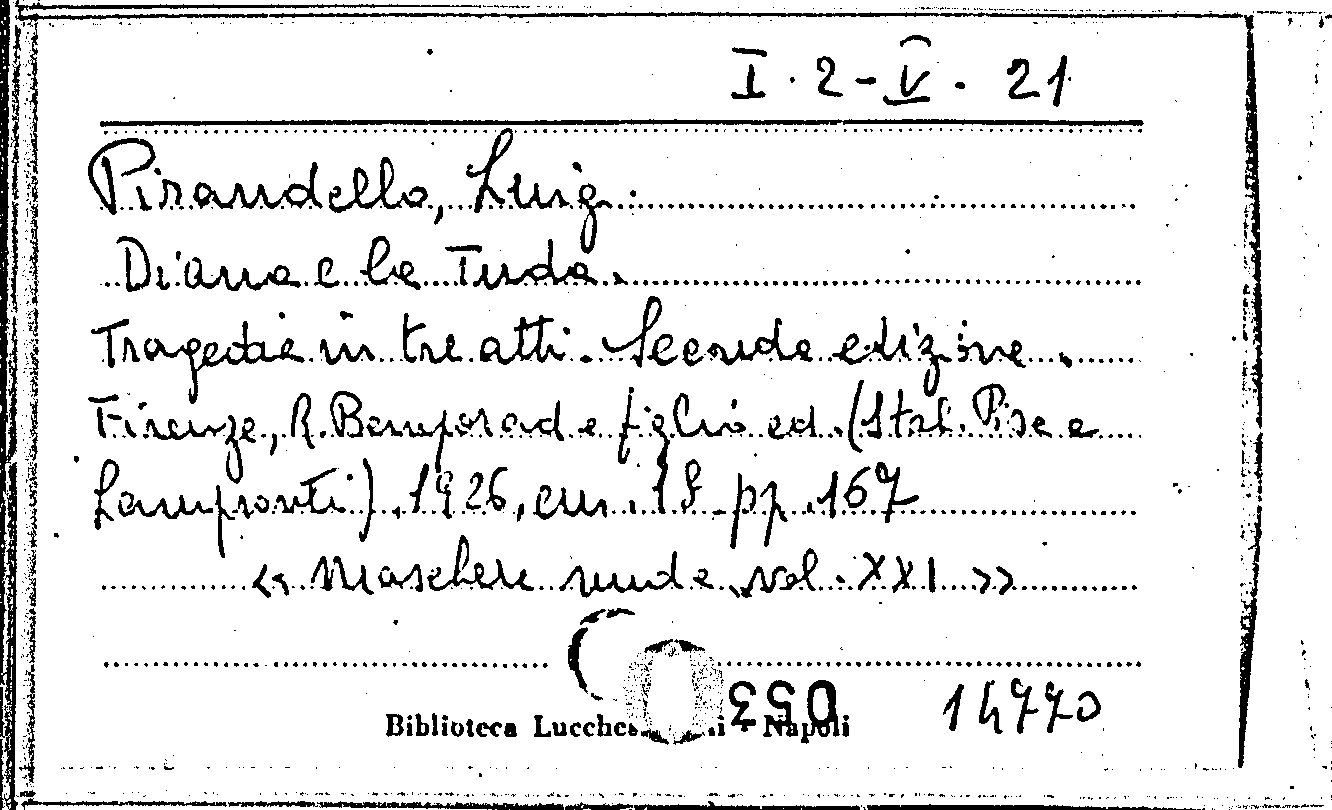 I. 2-V. 21
Pirandello, Luigi.
Diana e la Tuda.
Tragedia in tre atti. Seconda edizione.
Firenze, R. Bemporad e figlio ed. (Stab. Pisa e
Lampronti). 1926, cm. 18 pp. 167
« Maschere nude, vol. XXI »
053
14770
Biblioteca Napoli